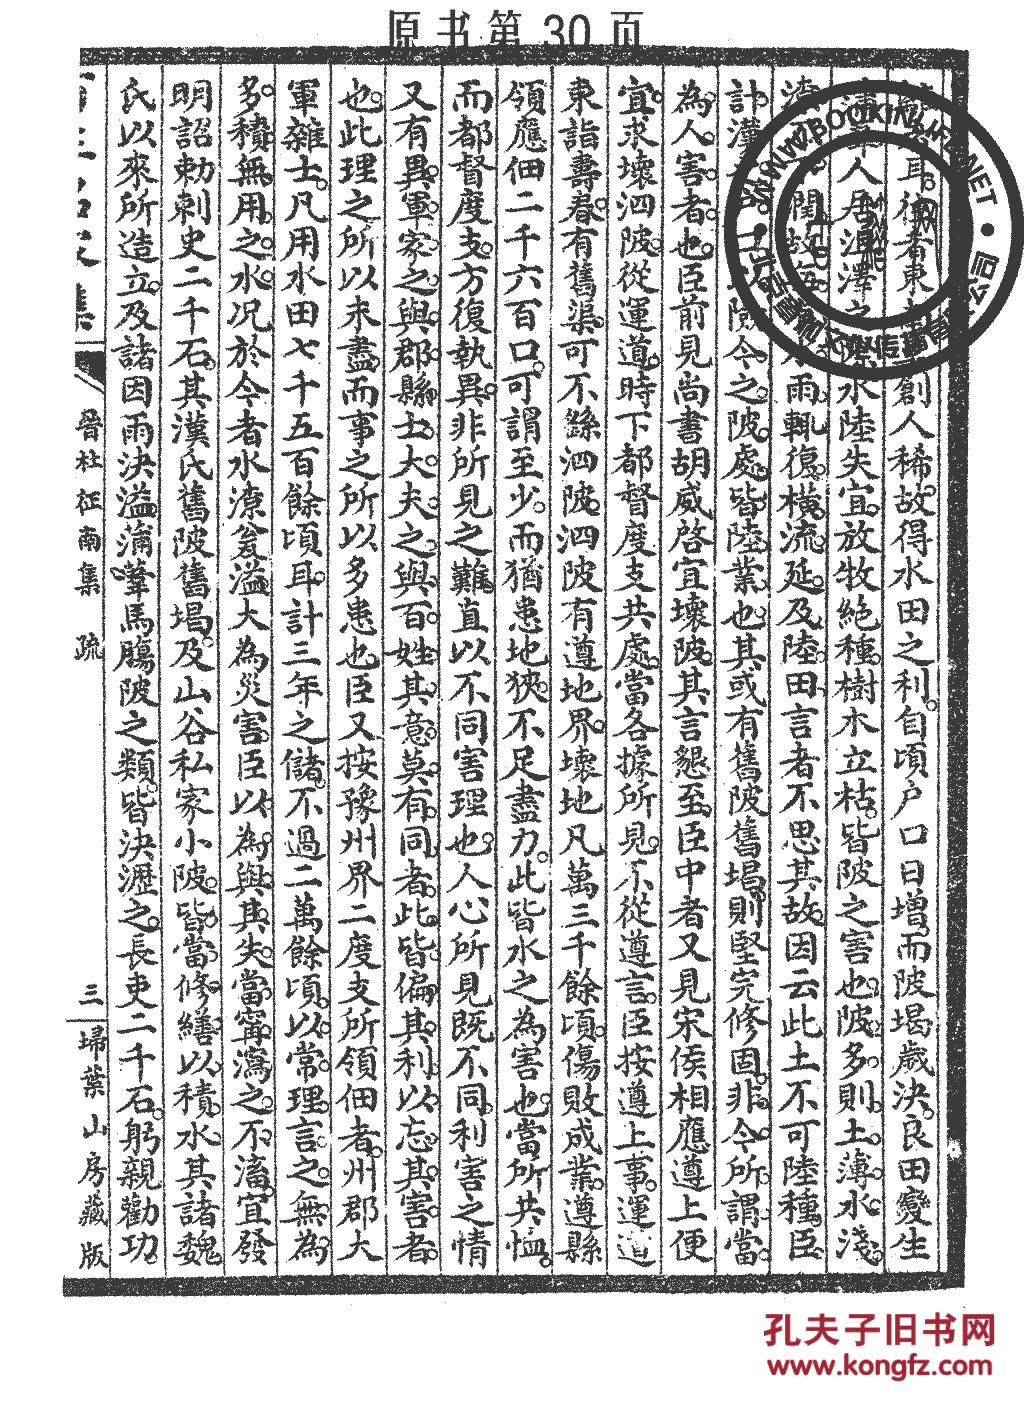 原书第 30 页
耳往者東
創人稀故得水田之利自頃户口日增而陂堨歲決良田變生
人居沮澤之際水陸失宜放牧絕種樹木立枯皆陂之害也陂多則土薄水淺
潦
雨輒復橫流延及陸田言者不思其故因云此土不可陸種臣
計漢
險今之陂處皆陸業也其或有舊陂舊堨則堅完修固非今所謂當
為人害者也臣前見尚書胡威啓宜壞陂其言懇至臣中者又見宋侯相應遵上便
宜求壞泗陂從運道時下都督度支共處當各據所見不從遵言臣按遵上事運道
東詣壽春有舊渠可不繇泗陂泗陂有遵地界壞地凡萬三千餘頃傷敗成業遵縣
領應佃二千六百口可謂至少而猶患地狹不足盡力此皆水之為害也當所共恤
而都督度支方復執異非所見之難直以不同害理也人心所見既不同利害之情
又有異軍家之與郡縣士大夫之與百姓其意莫有同者此皆偏其利以忘其害者
也此理之所以未盡而事之所以多患也臣又按豫州界二度支所領佃者州郡大
軍雜士凡用水田七千五百餘頃耳計三年之儲不過二萬餘頃以常理言之無為
多積無用之水況於今者水潦瓫溢大為災害臣以為與其失當寗瀉之不滀宜發
明詔勅刺史二千石其漢氏舊陂舊堨及山谷私家小陂皆當修繕以積水其諸魏
氏以來所造立及諸因雨決溢蒲葦馬腸陂之類皆決瀝之長吏二千石躬親勸功
晉杜征南集 疏
三
埽葉山房藏版
WWW.BOOKINLIFE.NET
孔夫子旧书网
www.kongfz.com